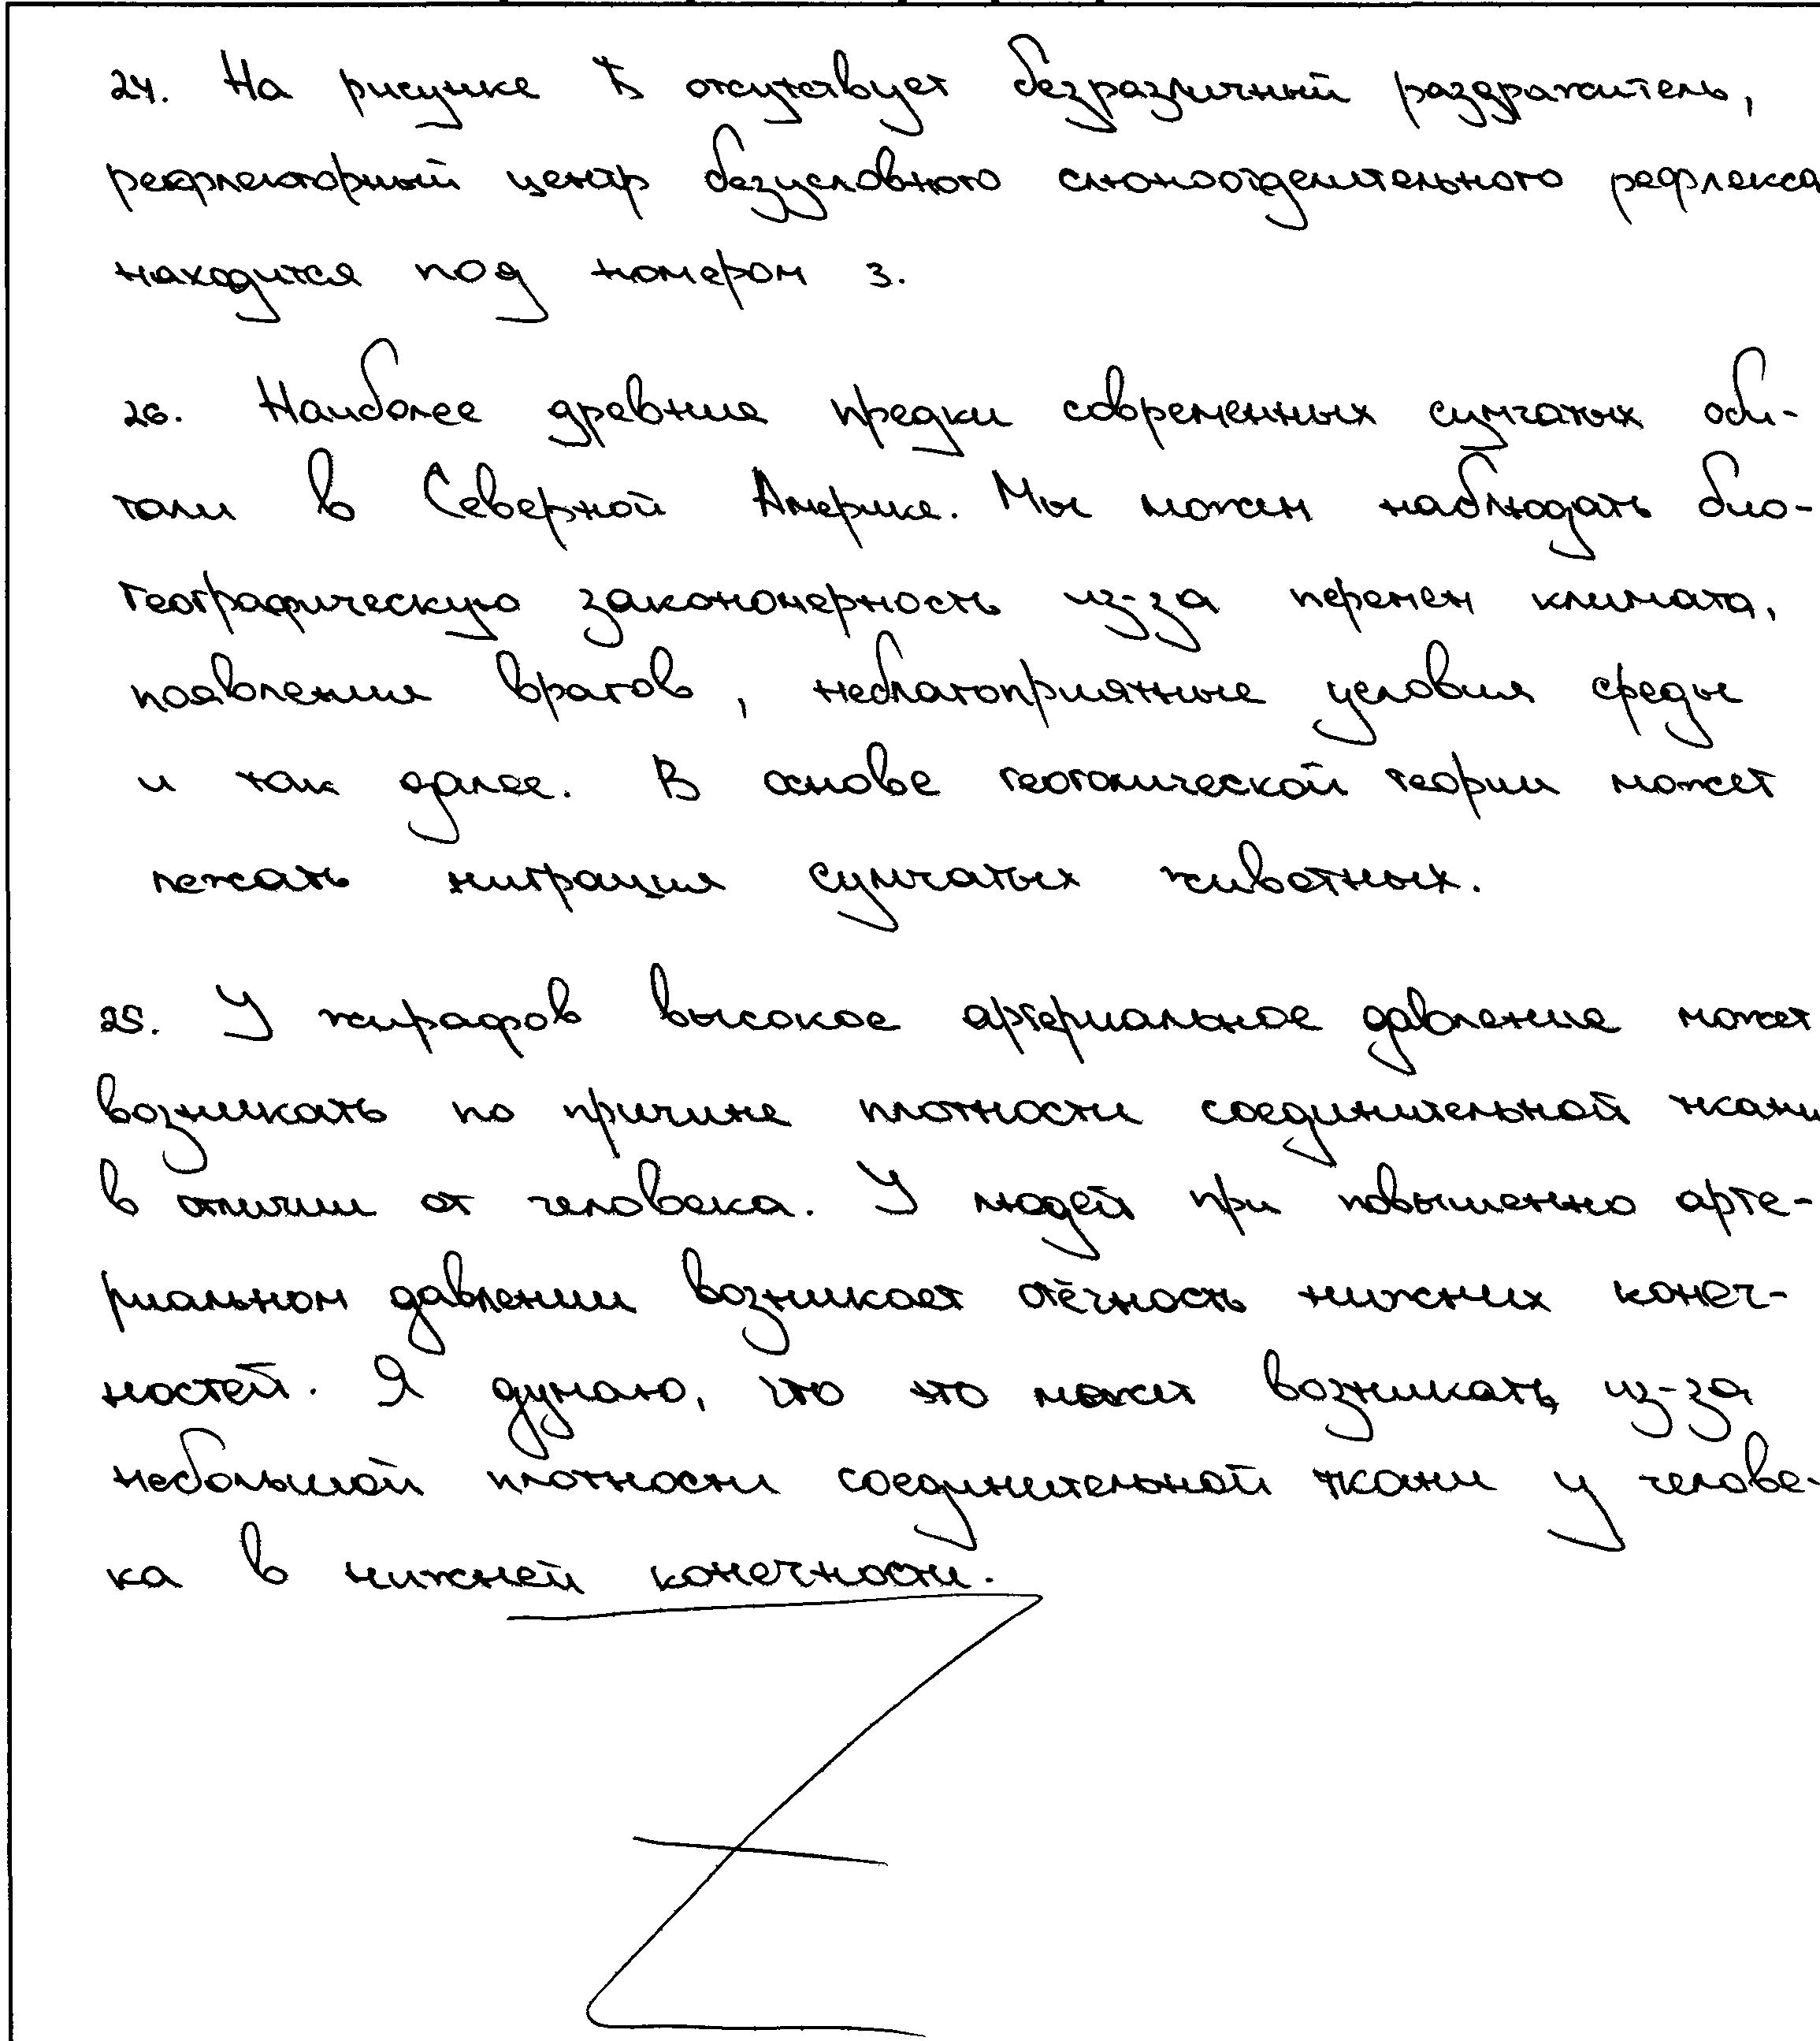 24. На рисунке Б отсутствует безразличный раздражитель,
рефлекторный центр безусловного слюноотделительного рефлекса
находится под номером 3.
26. Наиболее древние предки современных сумчатых оби-
тали в Северной Америке. Мы можем наблюдать био-
географическую закономерность из-за перемен климата,
появлении врагов, неблагоприятные условия среды
и так далее. В основе геотомической теории может
лежать миграция сумчатых животных.
25. У жирафов высокое артериальное давление может
возникать по причине плотности соединительной ткани
в отличии от человека. У людей при повышенно арте-
риальном давлении возникает отёчность нижних конеч-
ностей. Я думаю, что это может возникать из-за
небольшой плотности соединительной ткани у челове-
ка в нижней конечности.